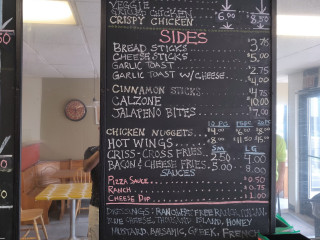 VEGGIE
CRISPY CHICKEN 6.00 8.50
SIDES
BREAD STICKS 3.75
CHEESE STICKS $5.00
GARLIC TOAST 2.75
GARLIC TOAST W/CHEESE 4.00
CINNAMON STICKS 4.75
CALZONE 10.00
JALAPENO BITES 7.00
CHICKEN NUGGETS $4.00 6.00 8.00
HOT WINGS $8.00 11.50
CRISS-CROSS FRIES 2.50 4.00
BACON & CHEESE FRIES 5.00 8.00
SAUCES
PIZZA SAUCE $0.50
RANCH $0.75
CHEESE DIP 1.00
DRESSINGS: RANCH, FAT FREE RANCH, ITALIAN,
BLUE CHEESE, THOUSAND ISLAND, HONEY
MUSTARD, BALSAMIC, GREEK, FRENCH